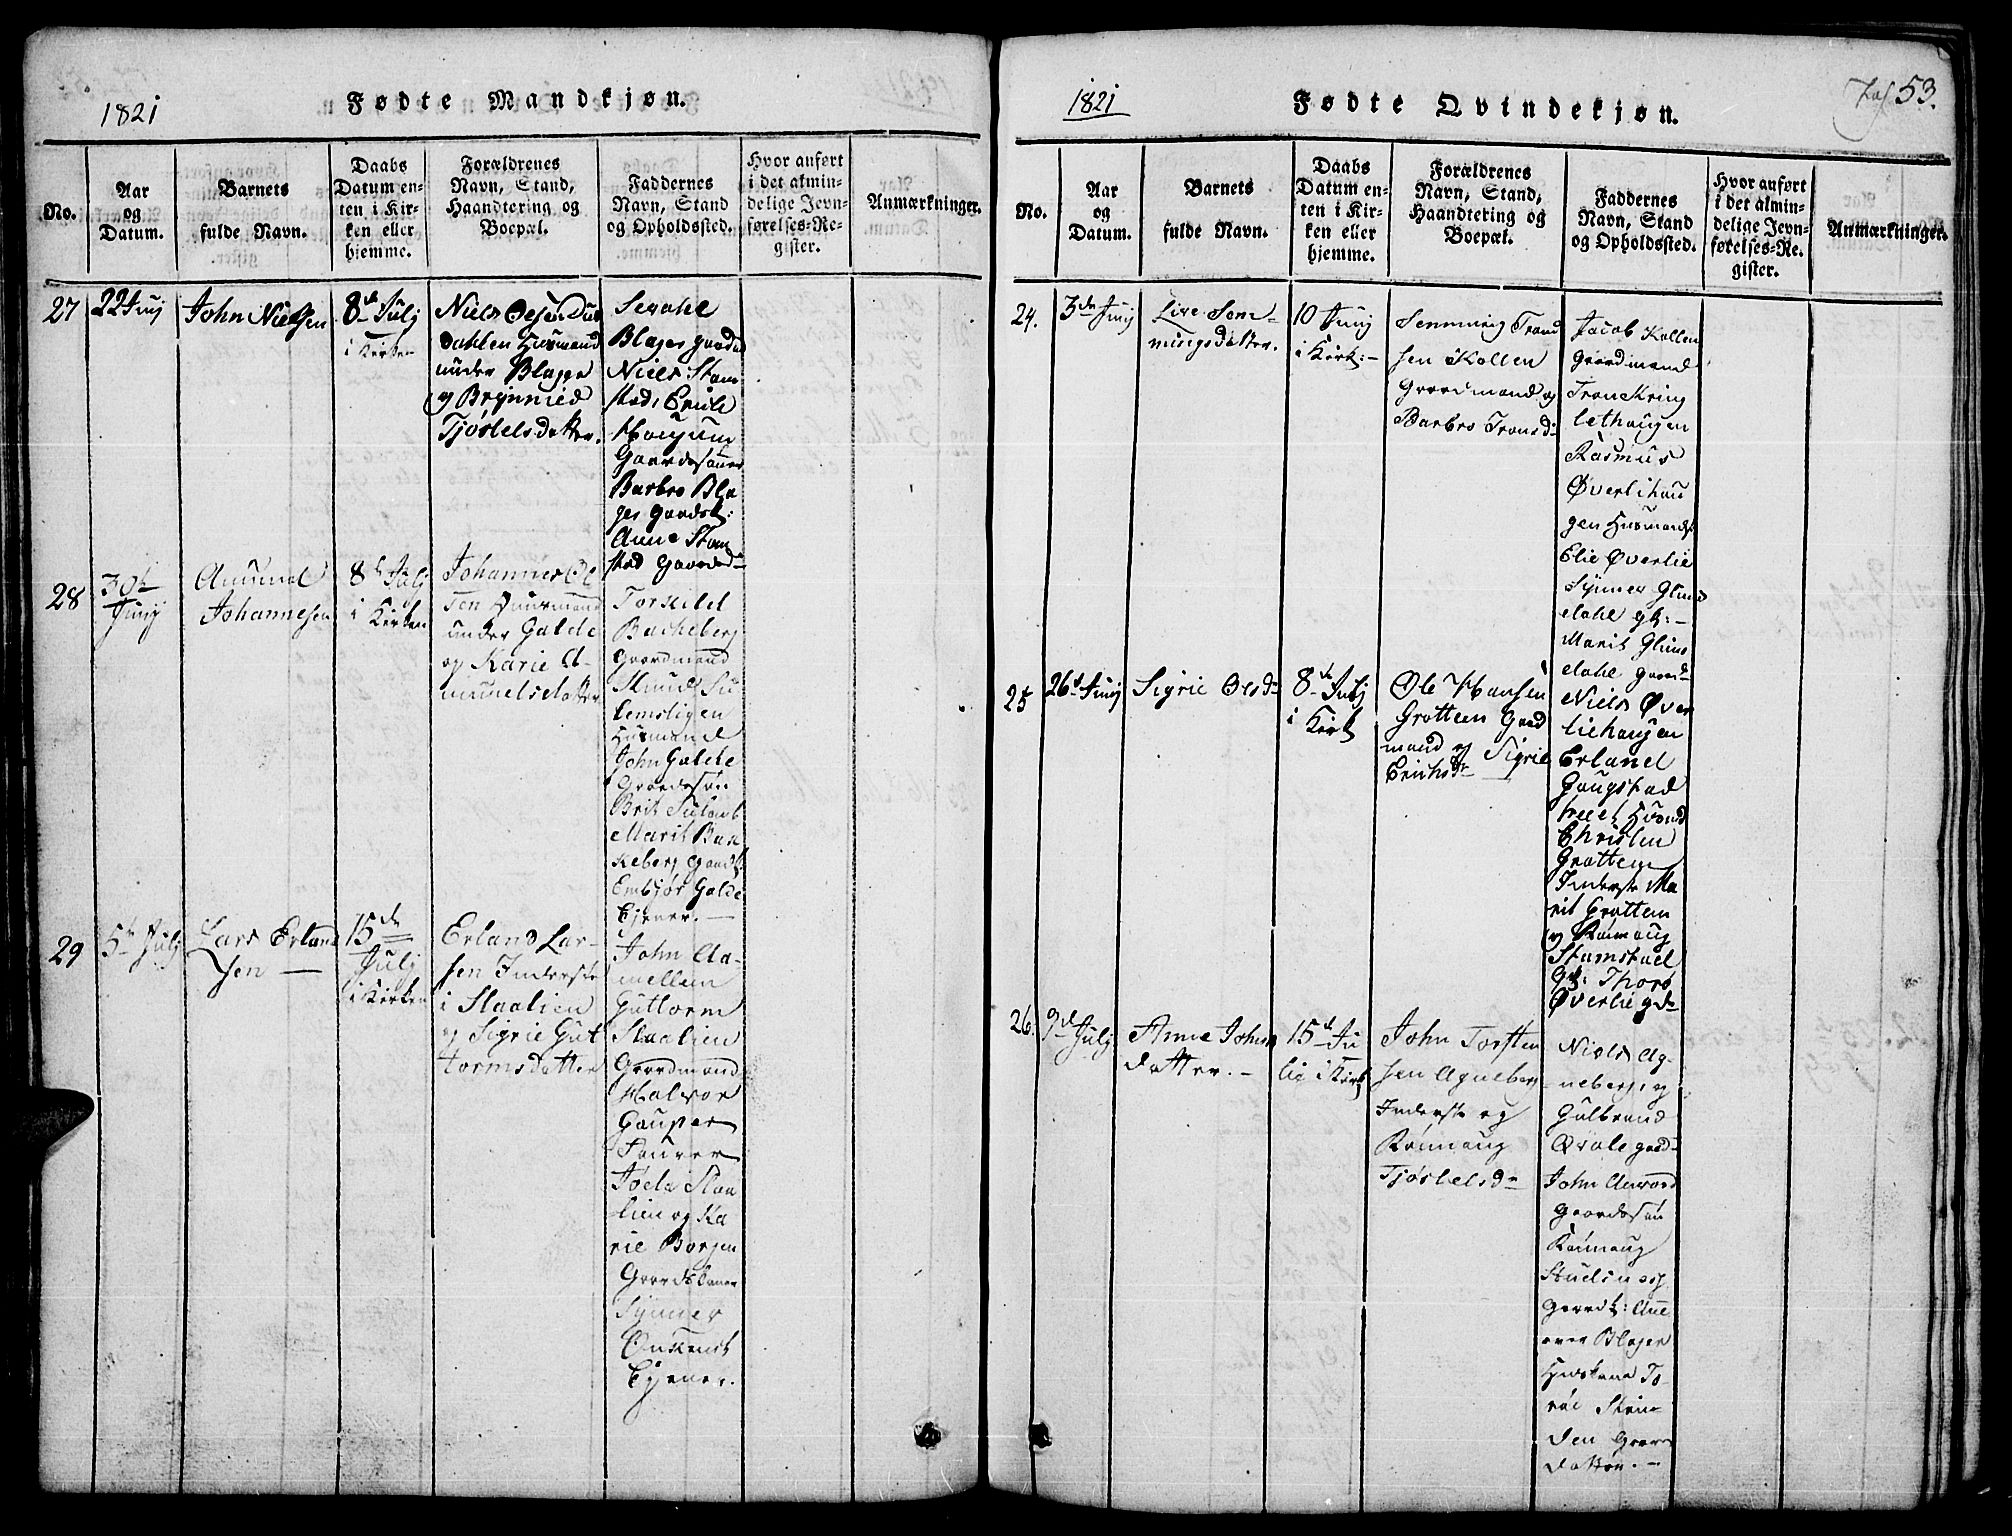 1821
Fødte Mandkjøn.
No.
Aar
og
Datum.
Barnets
fulde Navn.
Daabs
Datum en-
ten i Kir-
ken eller
hjemme.
Forældrenes
Navn, Stand,
Haandtering og
Boepæl.
Faddernes
Navn, Stand
og Opholdssted.
Hvor anført
i det almin-
delige Jevn-
førelses-Re-
gister.
Anmærkninger.
27
22 Junj
John Nielsen
8de Julj
i Kirken
Niels Olsen Dus
dahlen Husmand
under Blager
og Brynnild
Tjøstelsdatter.
Blager gaard
Niels Stam
stad, Erich
Gaardsønner
Barbro Bla
ger Gaardk:
Anne Stam
stad Gaardd
28
30te
Junj
Amund
Johannesen
8de Julj
i Kirken
Johannes Ol
sen Huusmand
under Galde
og Karie A-
mundsdatter
Torkild
Bacheberg
Gaardmand
Knud Su
lemsligen
Husmand
John Galde
Gaardesøn
Brit
Marit Bak
keberg Gaardk
Embjør Galde
Tjener.
29
5te Julj
Lars Erland
sen
15de
Julj
i Kirken
Erland Lar-
sen Inderste
i Staalien
og Sigrie Gut
tormsdatter
John Aa-
mellem
Guttorm
Staalien
Gaardmænd
Halvor
Gauper
Joda Staa
lien og Ka
rie Borgen
Gaardskoner
Synner
Tjener.
1821
Fødte Qvindekjøn.
53.
No.
Aar
og
Datum.
Barnets
fulde Navn.
Daabs
Datum en-
ten i Kir-
ken eller
hjemme.
Forældrenes
Navn, Stand,
Haandtering og
Boepæl.
Faddernes
Navn, Stand
og Opholdssted.
Hvor anført
i det almin-
delige Jevn-
førelses-Re-
gister.
Anmærkninger.
24.
3de Junj
Live Sem-
mingsdatter.
10 Junj
i Kirk:
Semming Trond
sen Kollen
Gaardmand og
Barbro Tronsd
Jacob Kollen
Gaardmand
Tron Kring
lethaugen
Rasmus
Øverlihau
gen Husmænd
Elie Øverlie
Synner Glims
dahl gk:
Marit Glims
dahl gaardd
25
26d Junj
Sigrie Olsdr
8de Julj
i Kirk
Ole Hansen
Grottem Gaard
mand og Sigrie
Erichsdr
Niels Øver
liehaugen
Erland
Gaugstad
Christen
Grottem
Inderste Ma
rit Grottem
og Rønnaug
Stamstad
Gk: Thora
Øverlie gdr
26.
9d Julj
Anne Johns
datter.
15d Ju
lii i Kirk
John Torsten
sen Agneberg
Inderste og
Rønnaug
Tjøstelsdr
Niels Ag-
neberg, og
Gulbrand
Qvale gaard
John Amord
Gaardesøn
Rønnaug
Gaardk: Ane
Blager
Huskone To-
den Gaard
datter.